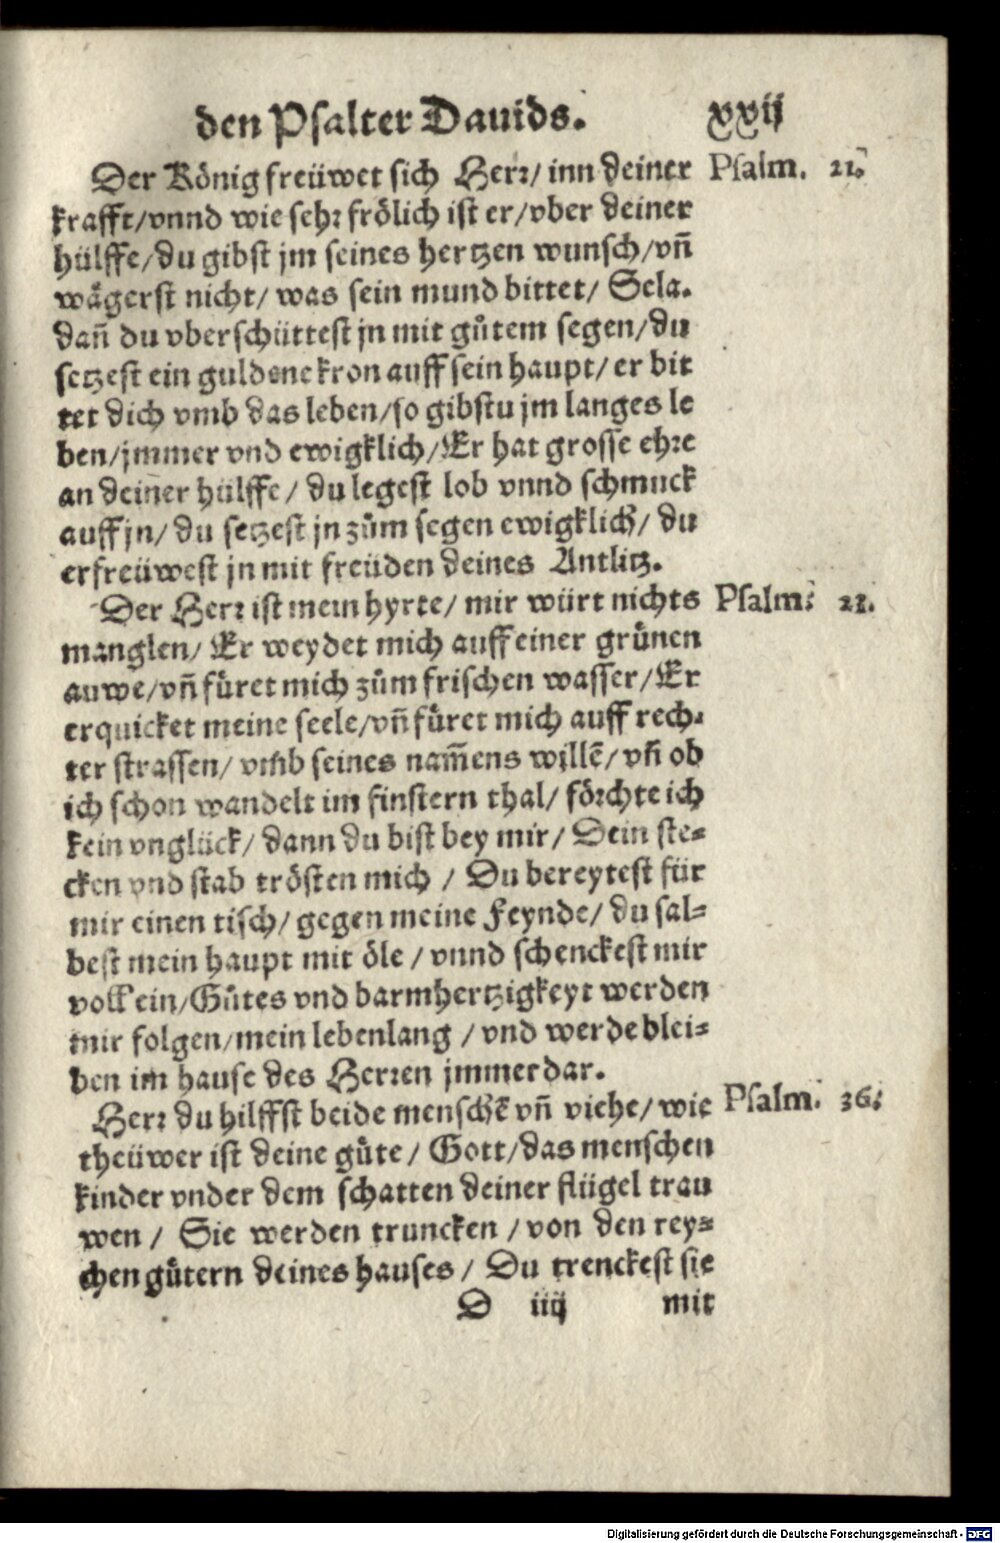 den Psalter Dauids. xxij
Der König freüwet sich Herr/ inn deiner Psalm. 21.
krafft/vnnd wie sehr frölich ist er/vber deiner
hülffe/du gibst jm seines hertzen wunsch/vñ
wägerst nicht/ was sein mund bittet/ Sela.
dañ du vberschüttest jn mit gůtem segen/du
setzest ein guldene kron auff sein haupt/ er bit
tet dich vmb das leben/so gibstu jm langes le
ben/jmmer vnd ewigklich/Er hat grosse ehre
an deiner hülffe/ du legest lob vnnd schmuck
auff jn/ du setzest jn zům segen ewigklich/ du
erfreüwest jn mit freüden deines Antlitz.
Der Herr ist mein hyrte/ mir würt nichts Psalm. 23.
manglen/ Er weydet mich auff einer grůnen
auwe/vñ fůret mich zům frischen wasser/Er
erquicket meine seele/vñ fůret mich auff rech-
ter strassen/ vmb seines nam̃ens willẽ/ vñ ob
ich schon wandelt im finstern thal/ förchte ich
kein vnglück/ dann du bist bey mir/ Dein ste-
cken vnd stab trösten mich / Du bereytest für
mir einen tisch/ gegen meine Feynde/ du sal-
best mein haupt mit öle / vnnd schenckest mir
voll ein/Gůtes vnd barmhertzigkeyt werden
mir folgen/mein lebenlang / vnd werde blei-
ben im hause des Herren jmmerdar.
Herr du hilffst beide menschẽ vñ viehe/ wie Psalm. 36.
theüwer ist deine gůte/ Gott/das menschen
kinder vnder dem schatten deiner flügel trau
wen / Sie werden truncken / von den rey-
chen gůtern deines hauses / Du trenckest sie
D iiij mit
Digitalisierung gefördert durch die Deutsche Forschungsgemeinschaft - DFG